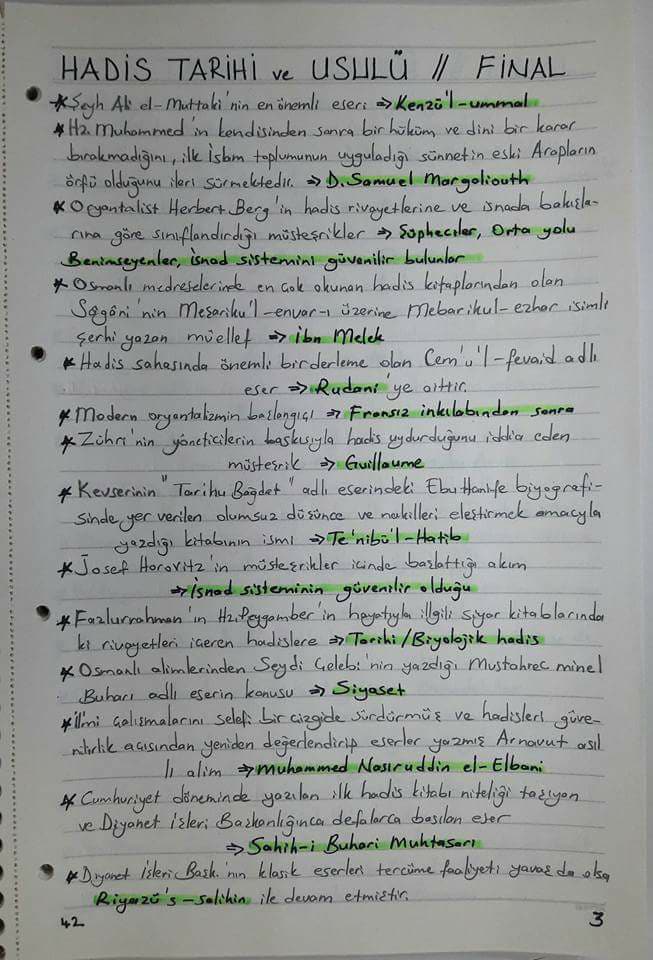 HADİS TARİHİ ve USULÜ // FİNAL
* Şeyh Ali el-Muttaki'nin en önemli eseri ⇒ Kenzü'l-ummal
* Hz. Muhammed'in kendisinden sonra bir hüküm ve dini bir karar
bırakmadığını, ilk İslam toplumunun uyguladığı sünnetin eski Arapların
örfü olduğunu ileri sürmektedir. ⇒ D. Samuel Margoliouth
* Oryantalist Herbert Berg'in hadis rivayetlerine ve isnada bakışla-
rına göre sınıflandırdığı müsteşrikler ⇒ Şüpheciler, Orta yolu
Benimseyenler, İsnad sistemini güvenilir bulunlar
* Osmanlı medreselerinde en çok okunan hadis kitaplarından olan
Sâgâni'nin Meşariku'l-envar-ı üzerine Mebarikul-ezhar isimli
şerhi yazan müellef ⇒ İbn Melek
* Hadis sahasında önemli bir derleme olan Cem'u'l-fevaid adlı
eser ⇒ Rudani'ye aittir.
* Modern oryantalizmin başlangıçı ⇒ Fransız inkılabından sonra
* Zühri'nin yöneticilerin baskısıyla hadis uydurduğunu iddia eden
müsteşrik ⇒ Guillaume
* Kevserinin "Tarihu Bağdet" adlı eserindeki Ebu Hanife biyografi-
sinde yer verilen olumsuz düşünce ve nakilleri eleştirmek amacıyla
yazdığı kitabının ismi ⇒ Te'nibü'l-Hatib
* Josef Horovitz'in müsteşrikler içinde başlattığı akım
⇒ İsnad sisteminin güvenilir olduğu
* Fazlurrahman'ın Hz. Peygamber'in hayatıyla illgili siyar kitablarında
ki rivayetleri içeren hadislere ⇒ Tarihi/Biyolojik hadis
* Osmanlı alimlerinden Seydi Çelebi'nin yazdığı Mustahrec minel
Buhari adlı eserin konusu ⇒ Siyaset
* İlmi çalışmalarını selefi bir çizgide sürdürmüş ve hadisleri güve-
nilirlik açısından yeniden değerlendirip eserler yazmış Arnavut asıl
lı alim ⇒ Muhammed Nasıruddin el-Elbani
* Cumhuriyet döneminde yazılan ilk hadis kitabı niteliği taşıyan
ve Diyanet İşleri Başkanlığınca defalarca basılan eser
⇒ Sahih-i Buhari Muhtasarı
* Diyanet İşleri Başk.'nın klasik eserleri tercüme faaliyeti yavaş da olsa
Riyazü's-salihin ile devam etmiştir.
42
3